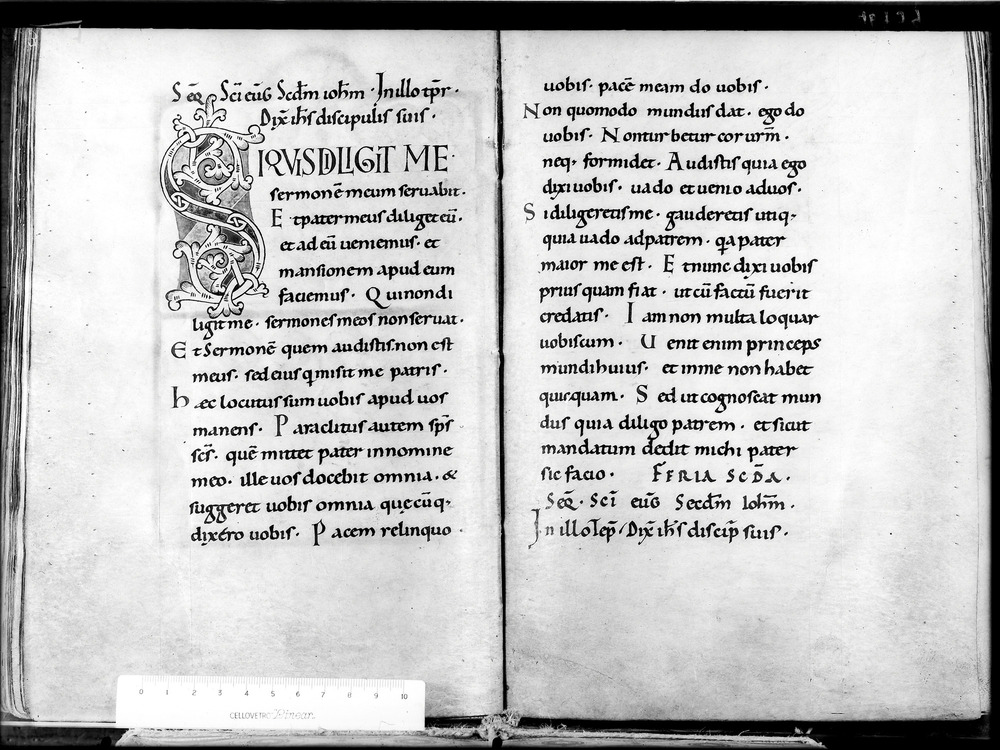 Seq̄ Sc̄i euḡ Scd̄m ioh̄m · In illo tp̄r ·
Dix̄ ih̄s discipulis suis ·
SIQVIS DILIGIT ME ·
sermonē meum seruabit ·
Et pater meus diliget eū ·
et ad eū ueniemus · et
mansionem apud eum
faciemus · Qui non di
ligit me · sermones meos non seruat ·
Et Sermonē quem audistis non est
meus · sed eius q misit me patris ·
hęc locutus sum uobis apud uos
manens · Paraclitus autem sp̄s
sc̄s · quē mittet pater in nomine
meo · ille uos docebit omnia · &
suggeret uobis omnia quęcūq;
dixero uobis · Pacem relinquo
uobis · pacē meam do uobis ·
Non quomodo mundus dat · ego do
uobis · Non turbetur cor ur̄m ·
neq; formidet · Audistis quia ego
dixi uobis · uado et uenio ad uos ·
Si diligeretis me · gauderetis utiq;
quia uado ad patrem · qa pater
maior me est · Et nunc dixi uobis
prius quam fiat · ut cū factū fuerit
credatis · Iam non multa loquar
uobiscum · Uenit enim princeps
mundi huius · et in me non habet
quicquam · Sed ut cognoscat mun
dus quia diligo patrem · et sicut
mandatum dedit michi pater
sic facio · FERIA SCD̄A ·
Seq̄ · Sc̄i euḡ Secdm̄ Ioh̄m ·
In illo Tep̄ / Dix̄ ih̄s discip̄ suis ·
0 1 2 3 4 5 6 7 8 9 10
CELLOVETRO Pinoan